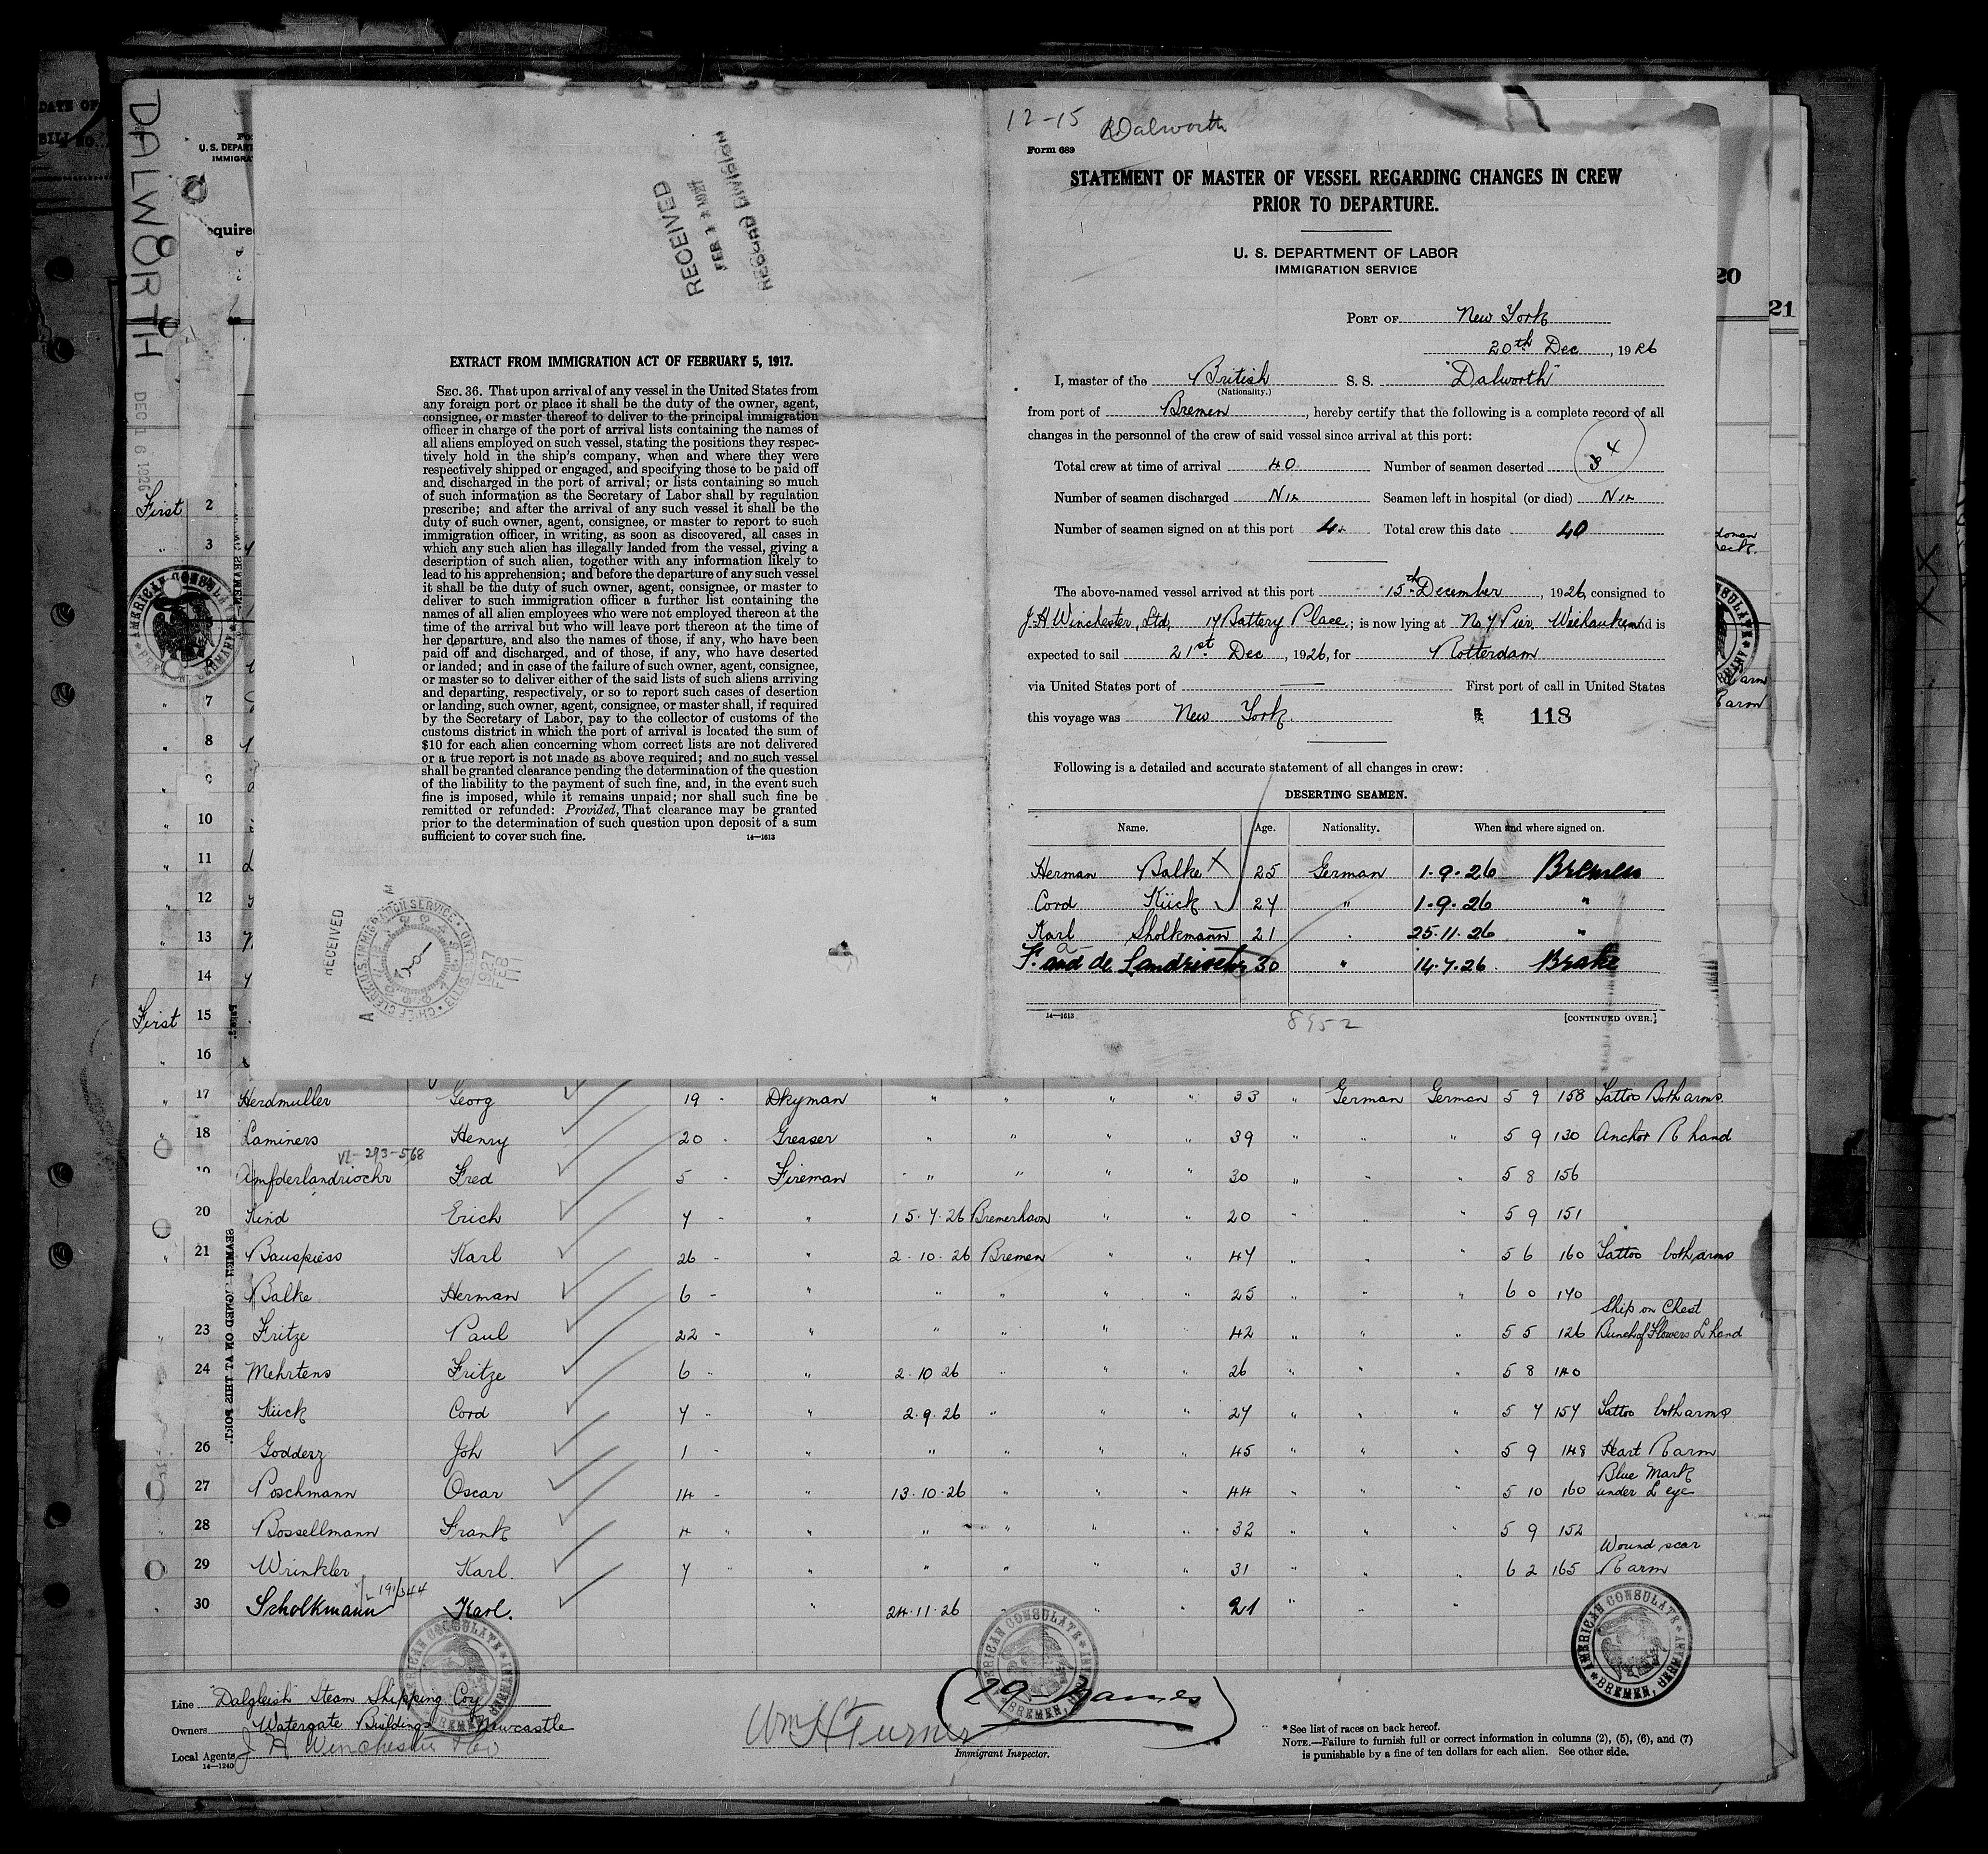 DATE OF
BILL NO.
DALWORTH
DEC 16 1926
U. S. DEPART
IMMIGRA
RECEIVED
RECORD DIVISION
EXTRACT FROM IMMIGRATION ACT OF FEBRUARY 5, 1917.
SEC. 36. That upon arrival of any vessel in the United States from
any foreign port or place it shall be the duty of the owner, agent,
consignee, or master thereof to deliver to the principal immigration
officer in charge of the port of arrival lists containing the names of
all aliens employed on such vessel, stating the positions they respec-
tively hold in the ship's company, when and where they were
respectively shipped or engaged, and specifying those to be paid off
and discharged in the port of arrival; or lists containing so much
of such information as the Secretary of Labor shall by regulation
prescribe; and after the arrival of any such vessel it shall be the
duty of such owner, agent, consignee, or master to report to such
immigration officer, in writing, as soon as discovered, all cases in
which any such alien has illegally landed from the vessel, giving a
description of such alien, together with any information likely to
lead to his apprehension; and before the departure of any such vessel
it shall be the duty of such owner, agent, consignee, or master to
deliver to such immigration officer a further list containing the
names of all alien employees who were not employed thereon at the
time of the arrival but who will leave port thereon at the time of
her departure, and also the names of those, if any, who have been
paid off and discharged, and of those, if any, who have deserted
or landed; and in case of the failure of such owner, agent, consignee,
or master so to deliver either of the said lists of such aliens arriving
and departing, respectively, or so to report such cases of desertion
or landing, such owner, agent, consignee, or master shall, if required
by the Secretary of Labor, pay to the collector of customs of the
customs district in which the port of arrival is located the sum of
$10 for each alien concerning whom correct lists are not delivered
or a true report is not made as above required; and no such vessel
shall be granted clearance pending the determination of the question
of the liability to the payment of such fine, and, in the event such
fine is imposed, while it remains unpaid; nor shall such fine be
remitted or refunded: Provided, That clearance may be granted
prior to the determination of such question upon deposit of a sum
sufficient to cover such fine. 14—1613
RECEIVED
12-15 Dalworth
Form 689
STATEMENT OF MASTER OF VESSEL REGARDING CHANGES IN CREW
PRIOR TO DEPARTURE.
U. S. DEPARTMENT OF LABOR
IMMIGRATION SERVICE
PORT OF New York
20th Dec, 1926
I, master of the British S. S. "Dalworth"
(Nationality.)
from port of Bremen, hereby certify that the following is a complete record of all
changes in the personnel of the crew of said vessel since arrival at this port:
Total crew at time of arrival 40 Number of seamen deserted 4
Number of seamen discharged Nil Seamen left in hospital (or died) Nil
Number of seamen signed on at this port 4 Total crew this date 40
The above-named vessel arrived at this port 15th December, 1926, consigned to
J. H Winchester, Ltd, 17 Battery Place; is now lying at No 7 Pier Weehauken and is
expected to sail 21st Dec, 1926, for Rotterdam
via United States port of —— First port of call in United States
this voyage was New York. 118
Following is a detailed and accurate statement of all changes in crew:
DESERTING SEAMEN.
Name. Age. Nationality. When and where signed on.
Herman Balke X 25 German 1.9.26 Bremen
Cord Kück 27 " 1.9.26 "
Karl Sholkmann 21 " 25.11.26 "
F. de Landriochr 30 " 14.7.26 Brake
14—1613 8952 [CONTINUED OVER.]
20
21
First 2
" 3
7
" 8
9
10
11
12
13
14
First 15
16
17 Herdmuller Georg 19 - Dkyman " " " " 33 " German German 5 9 158 Tattoo Both arms
18 Laminers Henry 20 - Greaser " " " " 39 " " " 5 9 130 Anchor R hand
VL-293-568
19 Amfderlandriochr Fred 5 - Fireman " " " " 30 " " " 5 8 156
20 Kind Erich 7 - " 15.7.26 Bremerhavn " " 20 " " " 5 9 151
21 Bauspiess Karl 26 - " 2.10.26 Bremen " " 47 " " " 5 6 160 Tattoo both arms
Balke Herman 6 - " " " " " 25 " " " 6 0 170
Ship on Chest
23 Fritze Paul 22 - " " " " " 42 " " " 5 5 126 Bunch of Flowers L hand
24 Mehrtens Fritze 6 - " 2.10 26 " " " 26 " " " 5 8 140
Kück Cord 7 - " 2.9.26 " " " 27 " " " 5 7 157 Tattoo both arms
26 Godderz Joh 1 - " " " " " 45 " " " 5 9 148 Heart R arm
Blue Mark
27 Poschmann Oscar 14 - " 13.10.26 " " " 44 " " " 5 10 160 under L eye
28 Bossellmann Frank 4 " " " " " " 32 " " " 5 9 152
Wound scar
29 Wrinkler Karl. 7 " " " " " " 31 " " " 6 2 165 R arm
191/344
30 Scholkmann Karl. " 24.11.26 " " " 21 " " "
SEAMEN SIGNED ON AT THIS PORT.
AMERICAN CONSULATE
BREMEN, GERMANY
Line "Dalgleish" Steam Shipping Coy
Owners Watergate Buildings Newcastle
Local Agents J H Winchester & Co
14—1240
Wm H Turner
Immigrant Inspector.
(29 names)
* See list of races on back hereof.
NOTE.—Failure to furnish full or correct information in columns (2), (5), (6), and (7)
is punishable by a fine of ten dollars for each alien. See other side.